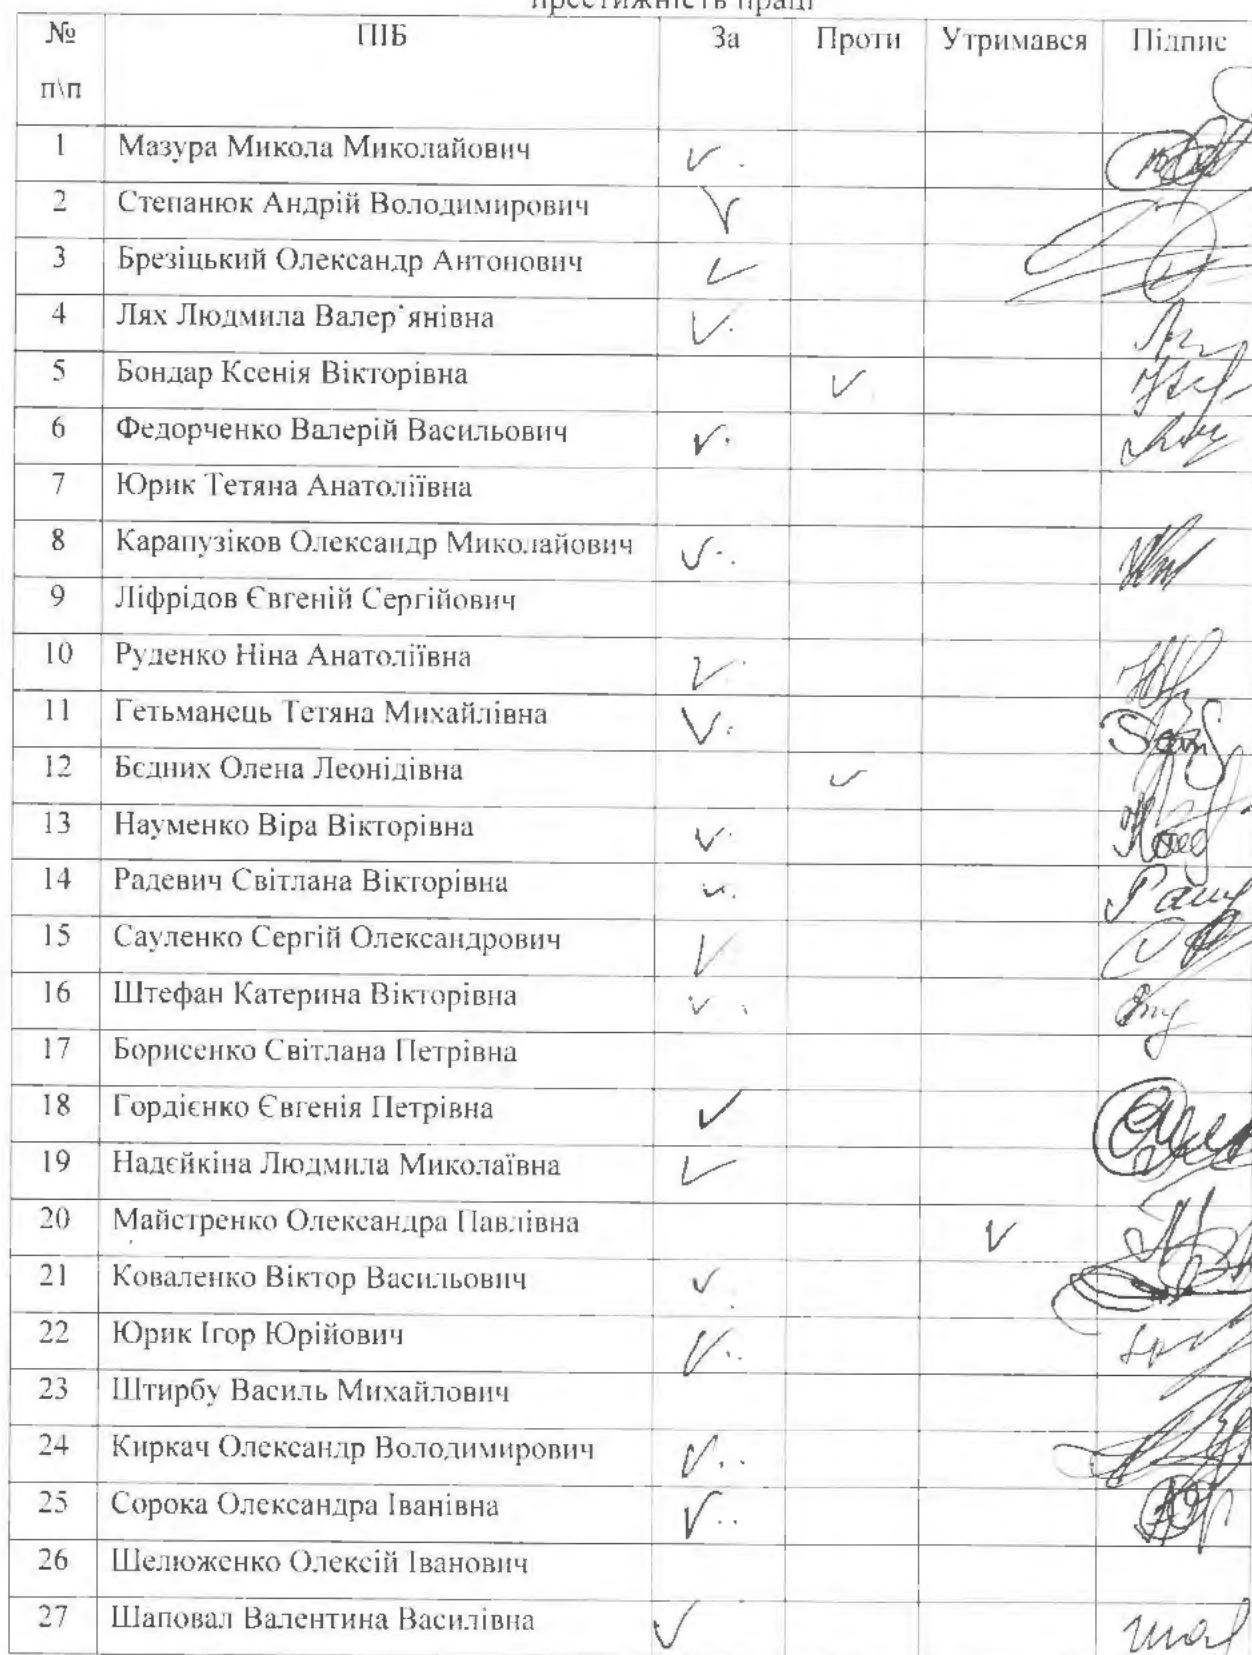 престижність праці
№ п\п ПІБ За Проти Утримався Підпис
1 Мазура Микола Миколайович
2 Степанюк Андрій Володимирович
3 Брезіцький Олександр Антонович
4 Лях Людмила Валер'янівна
5 Бондар Ксенія Вікторівна
6 Федорченко Валерій Васильович
7 Юрик Тетяна Анатоліївна
8 Карапузіков Олександр Миколайович
9 Ліфрідов Євгеній Сергійович
10 Руденко Ніна Анатоліївна
11 Гетьманець Тетяна Михайлівна
12 Бєдних Олена Леонідівна
13 Науменко Віра Вікторівна
14 Радевич Світлана Вікторівна
15 Сауленко Сергій Олександрович
16 Штефан Катерина Вікторівна
17 Борисенко Світлана Петрівна
18 Гордієнко Євгенія Петрівна
19 Надєйкіна Людмила Миколаївна
20 Майстренко Олександра Павлівна
21 Коваленко Віктор Васильович
22 Юрик Ігор Юрійович
23 Штирбу Василь Михайлович
24 Киркач Олександр Володимирович
25 Сорока Олександра Іванівна
26 Шелюженко Олексій Іванович
27 Шаповал Валентина Василівна